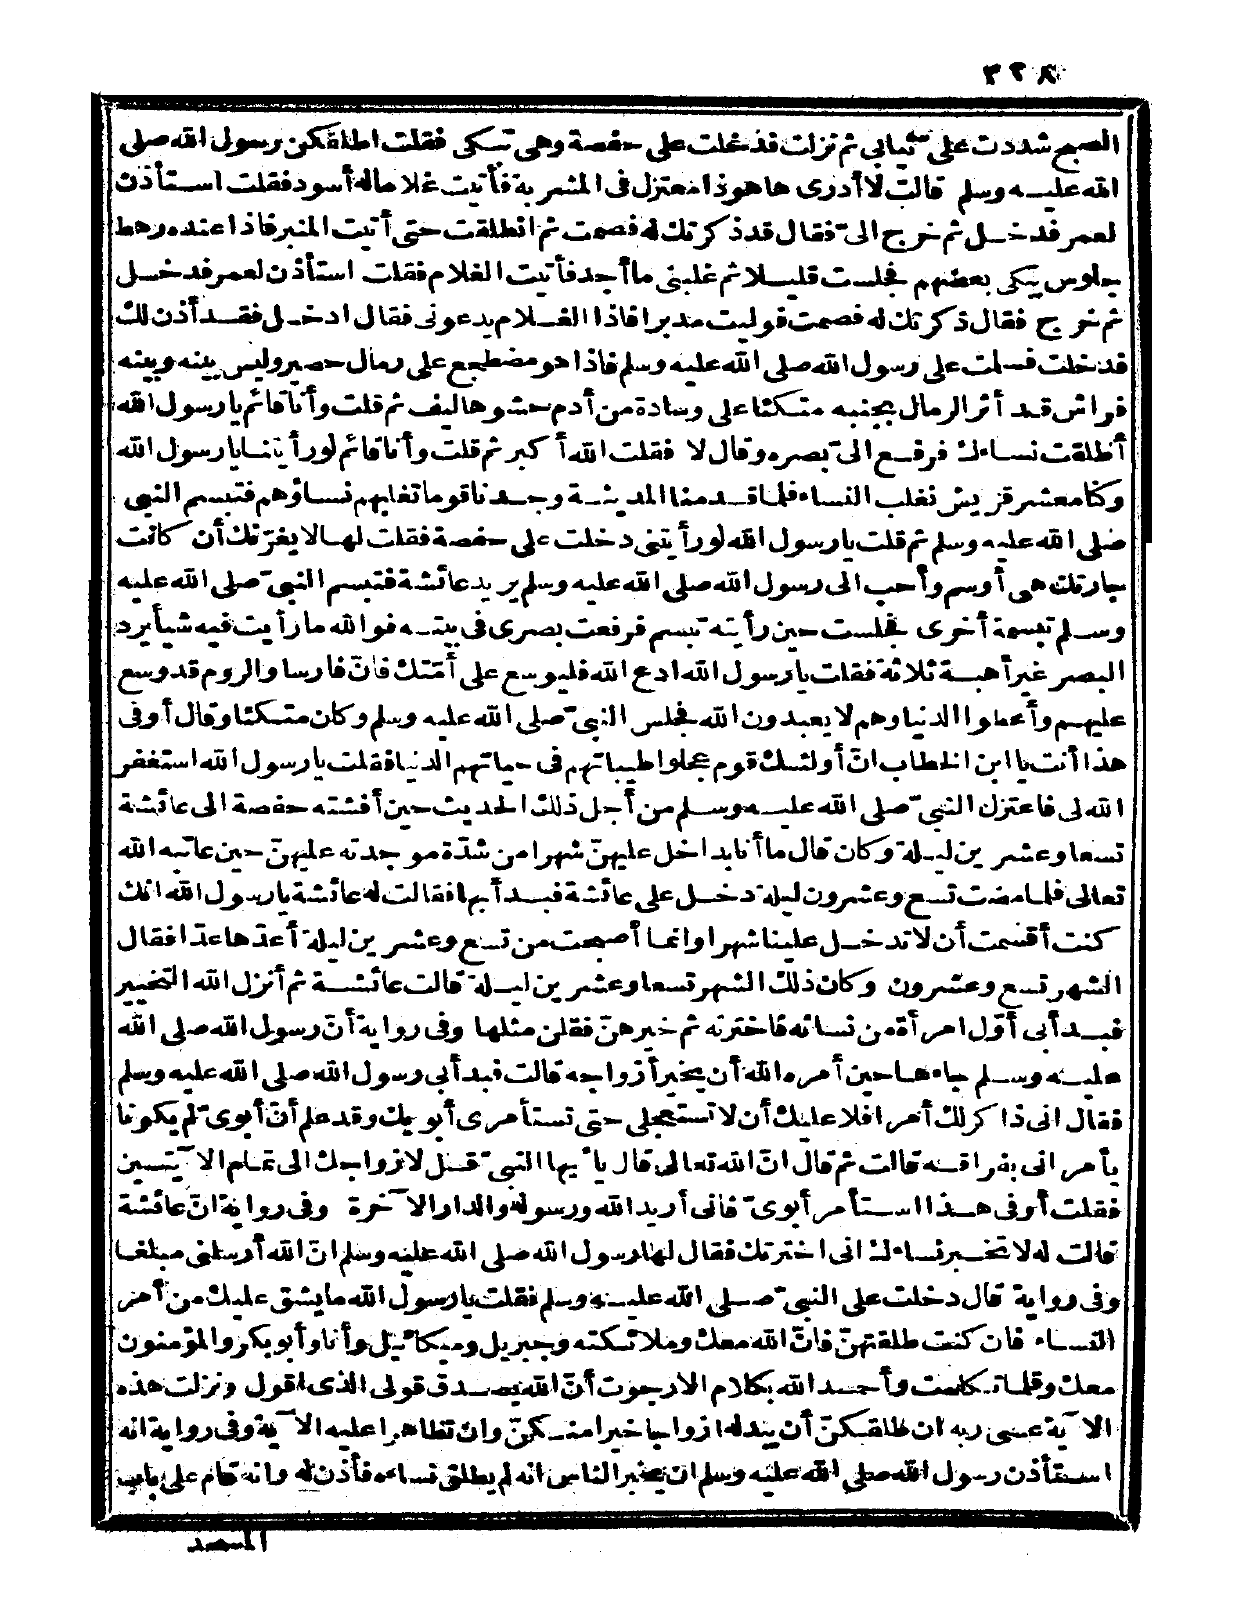 ٣٢٨
الصبح شددت على ثيابى ثم نزلت فدخلت على حفصة وهى تبكى فقلت اطلقكن رسول الله صلى
الله عليه وسلم قالت لا أدرى ها هوذا معتزل فى المشربة فأتيت غلاما له أسود فقلت استأذن
لعمر فدخل ثم خرج الىّ فقال قد ذكرتك له فصمت ثم انطلقت حتى أتيت المنبر فاذا عنده رهط
جلوس يبكى بعضهم فجلست قليلا ثم غلبنى ما أجد فأتيت الغلام فقلت استأذن لعمر فدخل
ثم خرج فقال ذكرتك له فصمت فوليت مدبرا فاذا الغلام يدعونى فقال ادخل فقد أذن لك
فدخلت فسلمت على رسول الله صلى الله عليه وسلم فاذا هو مضطجع على رمال حصير وليس بينه وبينه
فراش قد أثر الرمال بجنبه متكئا على وسادة من أدم حشوها ليف ثم قلت وأنا قائم يا رسول الله
أطلقت نساءك فرفع الىّ بصره وقال لا فقلت الله أكبر ثم قلت وأنا قائم لو رأيتنا يا رسول الله
وكنا معشر قريش نغلب النساء فلما قدمنا المدينة وجدنا قوما تغلبهم نساؤهم فتبسم النبي
صلى الله عليه وسلم ثم قلت يا رسول الله لو رأيتنى دخلت على حفصة فقلت لها لا يغرّنك أن كانت
جارتك هى أوسم وأحب الى رسول الله صلى الله عليه وسلم يريد عائشة فتبسم النبىّ صلى الله عليه
وسلم تبسمة أخرى فجلست حين رأيته تبسم فرفعت بصرى فى بيته فوالله ما رأيت فيه شيأ يرد
البصر غير أهبة ثلاثة فقلت يا رسول الله ادع الله فليوسع على أمّتك فانّ فارسا والروم قد وسع
عليهم وأعطوا الدنيا وهم لا يعبدون الله فجلس النبىّ صلى الله عليه وسلم وكان متكئا وقال أوفى
هذا أنت يا ابن الخطاب انّ أولئك قوم عجلوا طيباتهم فى حياتهم الدنيا فقلت يا رسول الله استغفر
الله لى فاعتزل النبىّ صلى الله عليه وسلم من أجل ذلك الحديث حين أفشته حفصة الى عائشة
تسعا وعشرين ليلة وكان قال ما أنا بداخل عليهنّ شهرا من شدّة موجدته عليهنّ حين عاتبه الله
تعالى فلما مضت تسع وعشرون ليلة دخل على عائشة فبدأ بها فقالت له عائشة يا رسول الله انك
كنت أقسمت أن لا تدخل علينا شهرا وانما أصبحت من تسع وعشرين ليلة أعدّها عدّا فقال
الشهر تسع وعشرون وكان ذلك الشهر تسعا وعشرين ليلة قالت عائشة ثم أنزل الله التخيير
فبدأ بى أوّل امرأة من نسائه فاخترته ثم خيرهنّ فقلن مثلها وفى رواية أنّ رسول الله صلى الله
عليه وسلم جاءها حين أمره الله أن يخير أزواجه قالت فبدأ بى رسول الله صلى الله عليه وسلم
فقال انى ذاكر لك أمرا فلا عليك أن لا تستعجلى حتى تستأمرى أبويك وقد علم أنّ أبوىّ لم يكونا
يأمرانى بفراقه قالت ثم قال انّ الله تعالى قال يأيها النبىّ قل لازواجك الى تمام الآيتين
فقلت أوفى هذا استأمر أبوىّ فانى أريد الله ورسوله والدار الآخرة وفى رواية انّ عائشة
قالت له لا تخبر نساءك انى اخترتك فقال لها رسول الله صلى الله عليه وسلم انّ الله أرسلنى مبلغا
وفى رواية قال دخلت على النبىّ صلى الله عليه وسلم فقلت يا رسول الله ما يشق عليك من أمر
النساء فان كنت طلقتهنّ فانّ الله معك وملائكته وجبريل وميكائيل وأنا وأبو بكر والمؤمنون
معك وقلما تكلمت وأحمد الله بكلام الا رجوت أنّ الله يصدق قولى الذى اقول ونزلت هذه
الآية عسى ربه ان طلقكنّ أن يبدله ازواجا خيرا منكنّ وان تظاهرا عليه الآية وفى رواية انه
استأذن رسول الله صلى الله عليه وسلم ان يخبر الناس انه لم يطلق نساءه فأذن له وانه قام على باب
المسجد